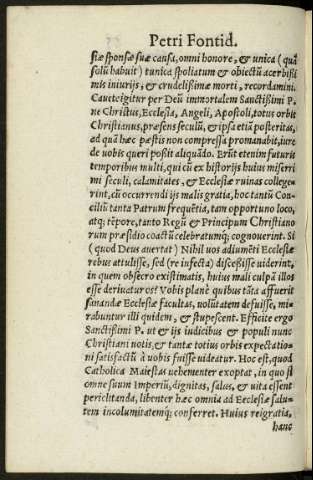 Petri Fontid.
siæ sponsæ suæ causa, omni honore, & unica (quã
solũ habuit) tunica spoliatum & obiectũ acerbissi
mis iniurijs, & crudelissimæ morti, recordamini.
Cauetcigitur per Deũ immortalem Sanctissimi P.
ne Christus, Ecclesia, Angeli, Apostoli, totus orbis
Christianus, præsens seculũ, & ipsa etiã posteritas,
ad quã hæc pæstis non compressa promanabit, iure
de uobis queri possit aliquãdo. Erũt etenim futuris
temporibus multi, qui cũ ex historijs huius miserri
mi seculi, calamitates, & Ecclesiæ ruinas college-
rint, cũ occurrendi ijs malis gratia, hoc tantũ Con-
ciliũ tanta Patrum frequẽtia, tam opportuno loco,
atq; tẽpore, tanto Regũ & Principum Christiano
rum præsidio coactũ celebratumq; cognouerint. Si
(quod Deus auertat) Nihil uos adiumẽti Ecclesiæ
rebus attulisse, sed (re infecta) discessisse uiderint,
in quem obsecro existimatis, huius mali culpã illos
esse deriuaturos? Vobis planè quibus tãta affuerit
sanandæ Ecclesiæ facultas, uolũtatem defuisse, mi-
rabuntur illi quidem, & stupescent. Efficite ergo
Sanctissimi P. ut & ijs iudicibus & populi nunc
Christiani uotis, & tantæ totius orbis expectatio-
ni satisfactũ à uobis fuisse uideatur. Hoc est, quod
Catholica Maiestas uehementer exoptat, in quo si
omne suum Imperiũ, dignitas, salus, & uita essent
periclitanda, libenter hæc omnia ad Ecclesiæ salu-
tem incolumitatemq; conferret. Huius rei gratia,
hanc